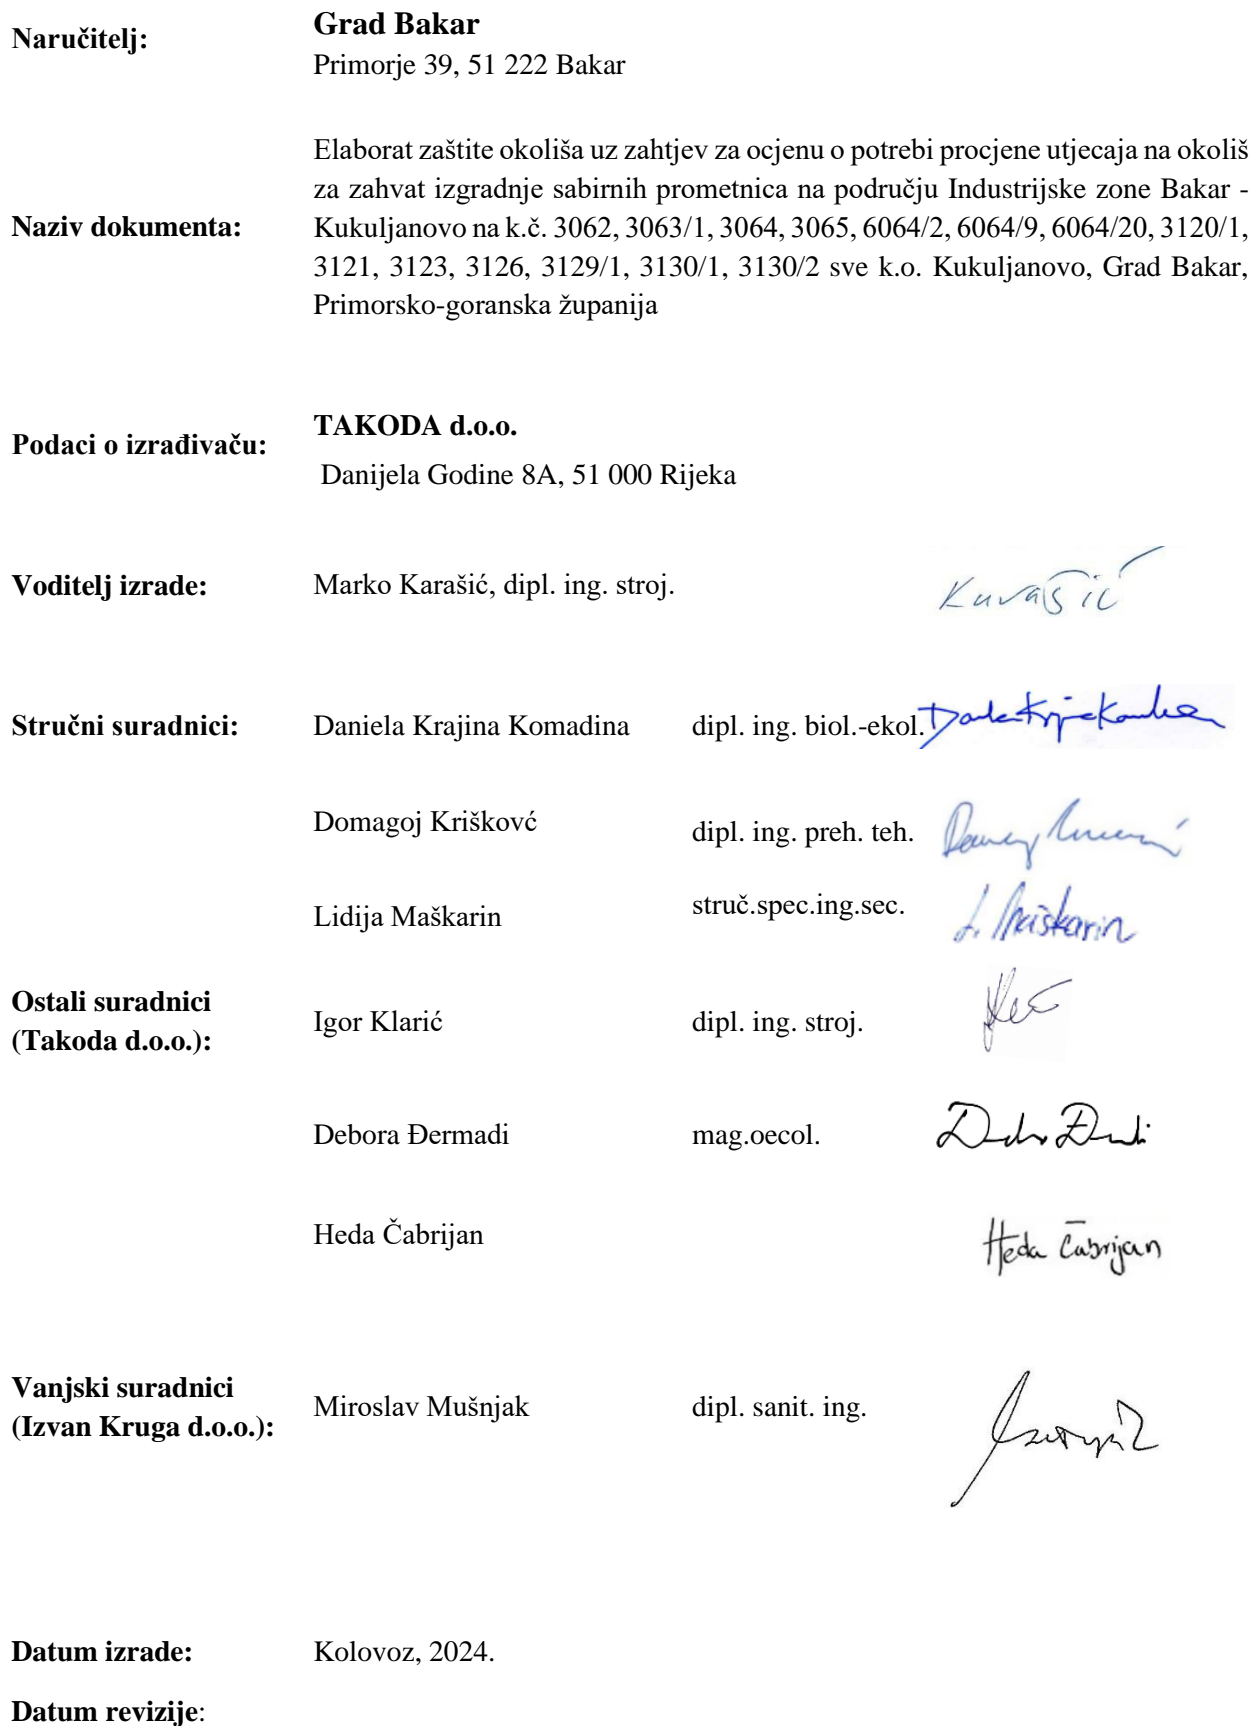 Naručitelj:
Grad Bakar
Primorje 39, 51 222 Bakar
Naziv dokumenta:
Elaborat zaštite okoliša uz zahtjev za ocjenu o potrebi procjene utjecaja na okoliš
za zahvat izgradnje sabirnih prometnica na području Industrijske zone Bakar -
Kukuljanovo na k.č. 3062, 3063/1, 3064, 3065, 6064/2, 6064/9, 6064/20, 3120/1,
3121, 3123, 3126, 3129/1, 3130/1, 3130/2 sve k.o. Kukuljanovo, Grad Bakar,
Primorsko-goranska županija
Podaci o izrađivaču:
TAKODA d.o.o.
Danijela Godine 8A, 51 000 Rijeka
Voditelj izrade: Marko Karašić, dipl. ing. stroj. Karašić
Stručni suradnici: Daniela Krajina Komadina dipl. ing. biol.-ekol.
Domagoj Kriškovć dipl. ing. preh. teh.
Lidija Maškarin struč.spec.ing.sec. L. Maškarin
Ostali suradnici
(Takoda d.o.o.):
Igor Klarić dipl. ing. stroj.
Debora Đermadi mag.oecol.
Heda Čabrijan Heda Čabrijan
Vanjski suradnici
(Izvan Kruga d.o.o.):
Miroslav Mušnjak dipl. sanit. ing.
Datum izrade: Kolovoz, 2024.
Datum revizije: